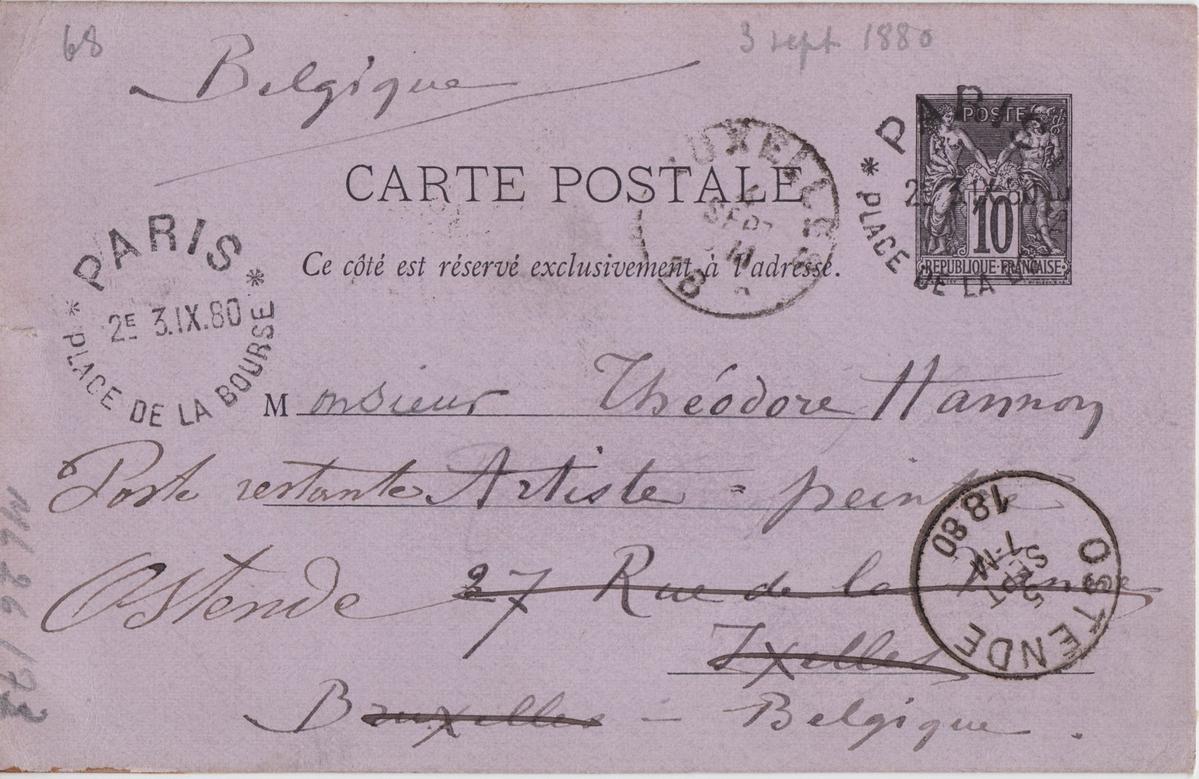 68
3 sept 1880
Belgique
PARIS
2E 3.IX.80
* PLACE DE LA BOURSE *
CARTE POSTALE
Ce côté est réservé exclusivement à l'adresse.
UXELLES
SEPT
8
PARIS
2E 3.IX.80
* PLACE DE LA
POSTE
10
REPUBLIQUE FRANÇAISE
Monsieur Théodore Hannon
Poste restante Artiste = peintre
Ostende 27 Rue de la
Ixelles
Bruxelles – Belgique.
OSTENDE
5 SEPT
7-M
1880
ML 26/73